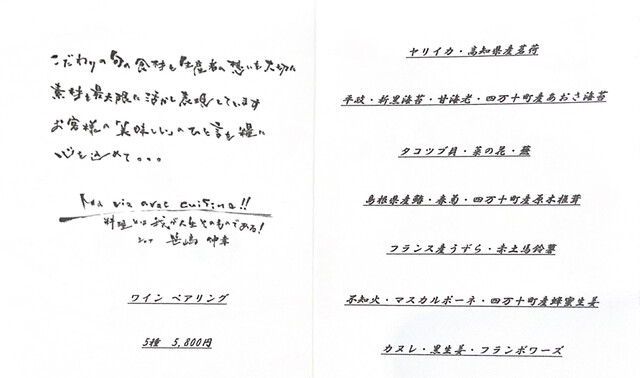 こだわりの旬の食材と生産者の想いを大切に
素材を最大限に活かし表現しています
お客様の「美味しい」のひと言を糧に
心を込めて。。。
Ma vie avec cuisine!!
料理とは我が人生そのものである!
シェフ
ワイン ペアリング
5種 5,800円
ヤリイカ・高知県産茗荷
平政・新黒海苔・甘海老・四万十町産あおさ海苔
タコツブ貝・菜の花・蕪
島根県産鰆・春菊・四万十町産原木椎茸
フランス産うずら・赤土馬鈴薯
不知火・マスカルポーネ・四万十町産蜂蜜生姜
カヌレ・黒生姜・フランボワーズ